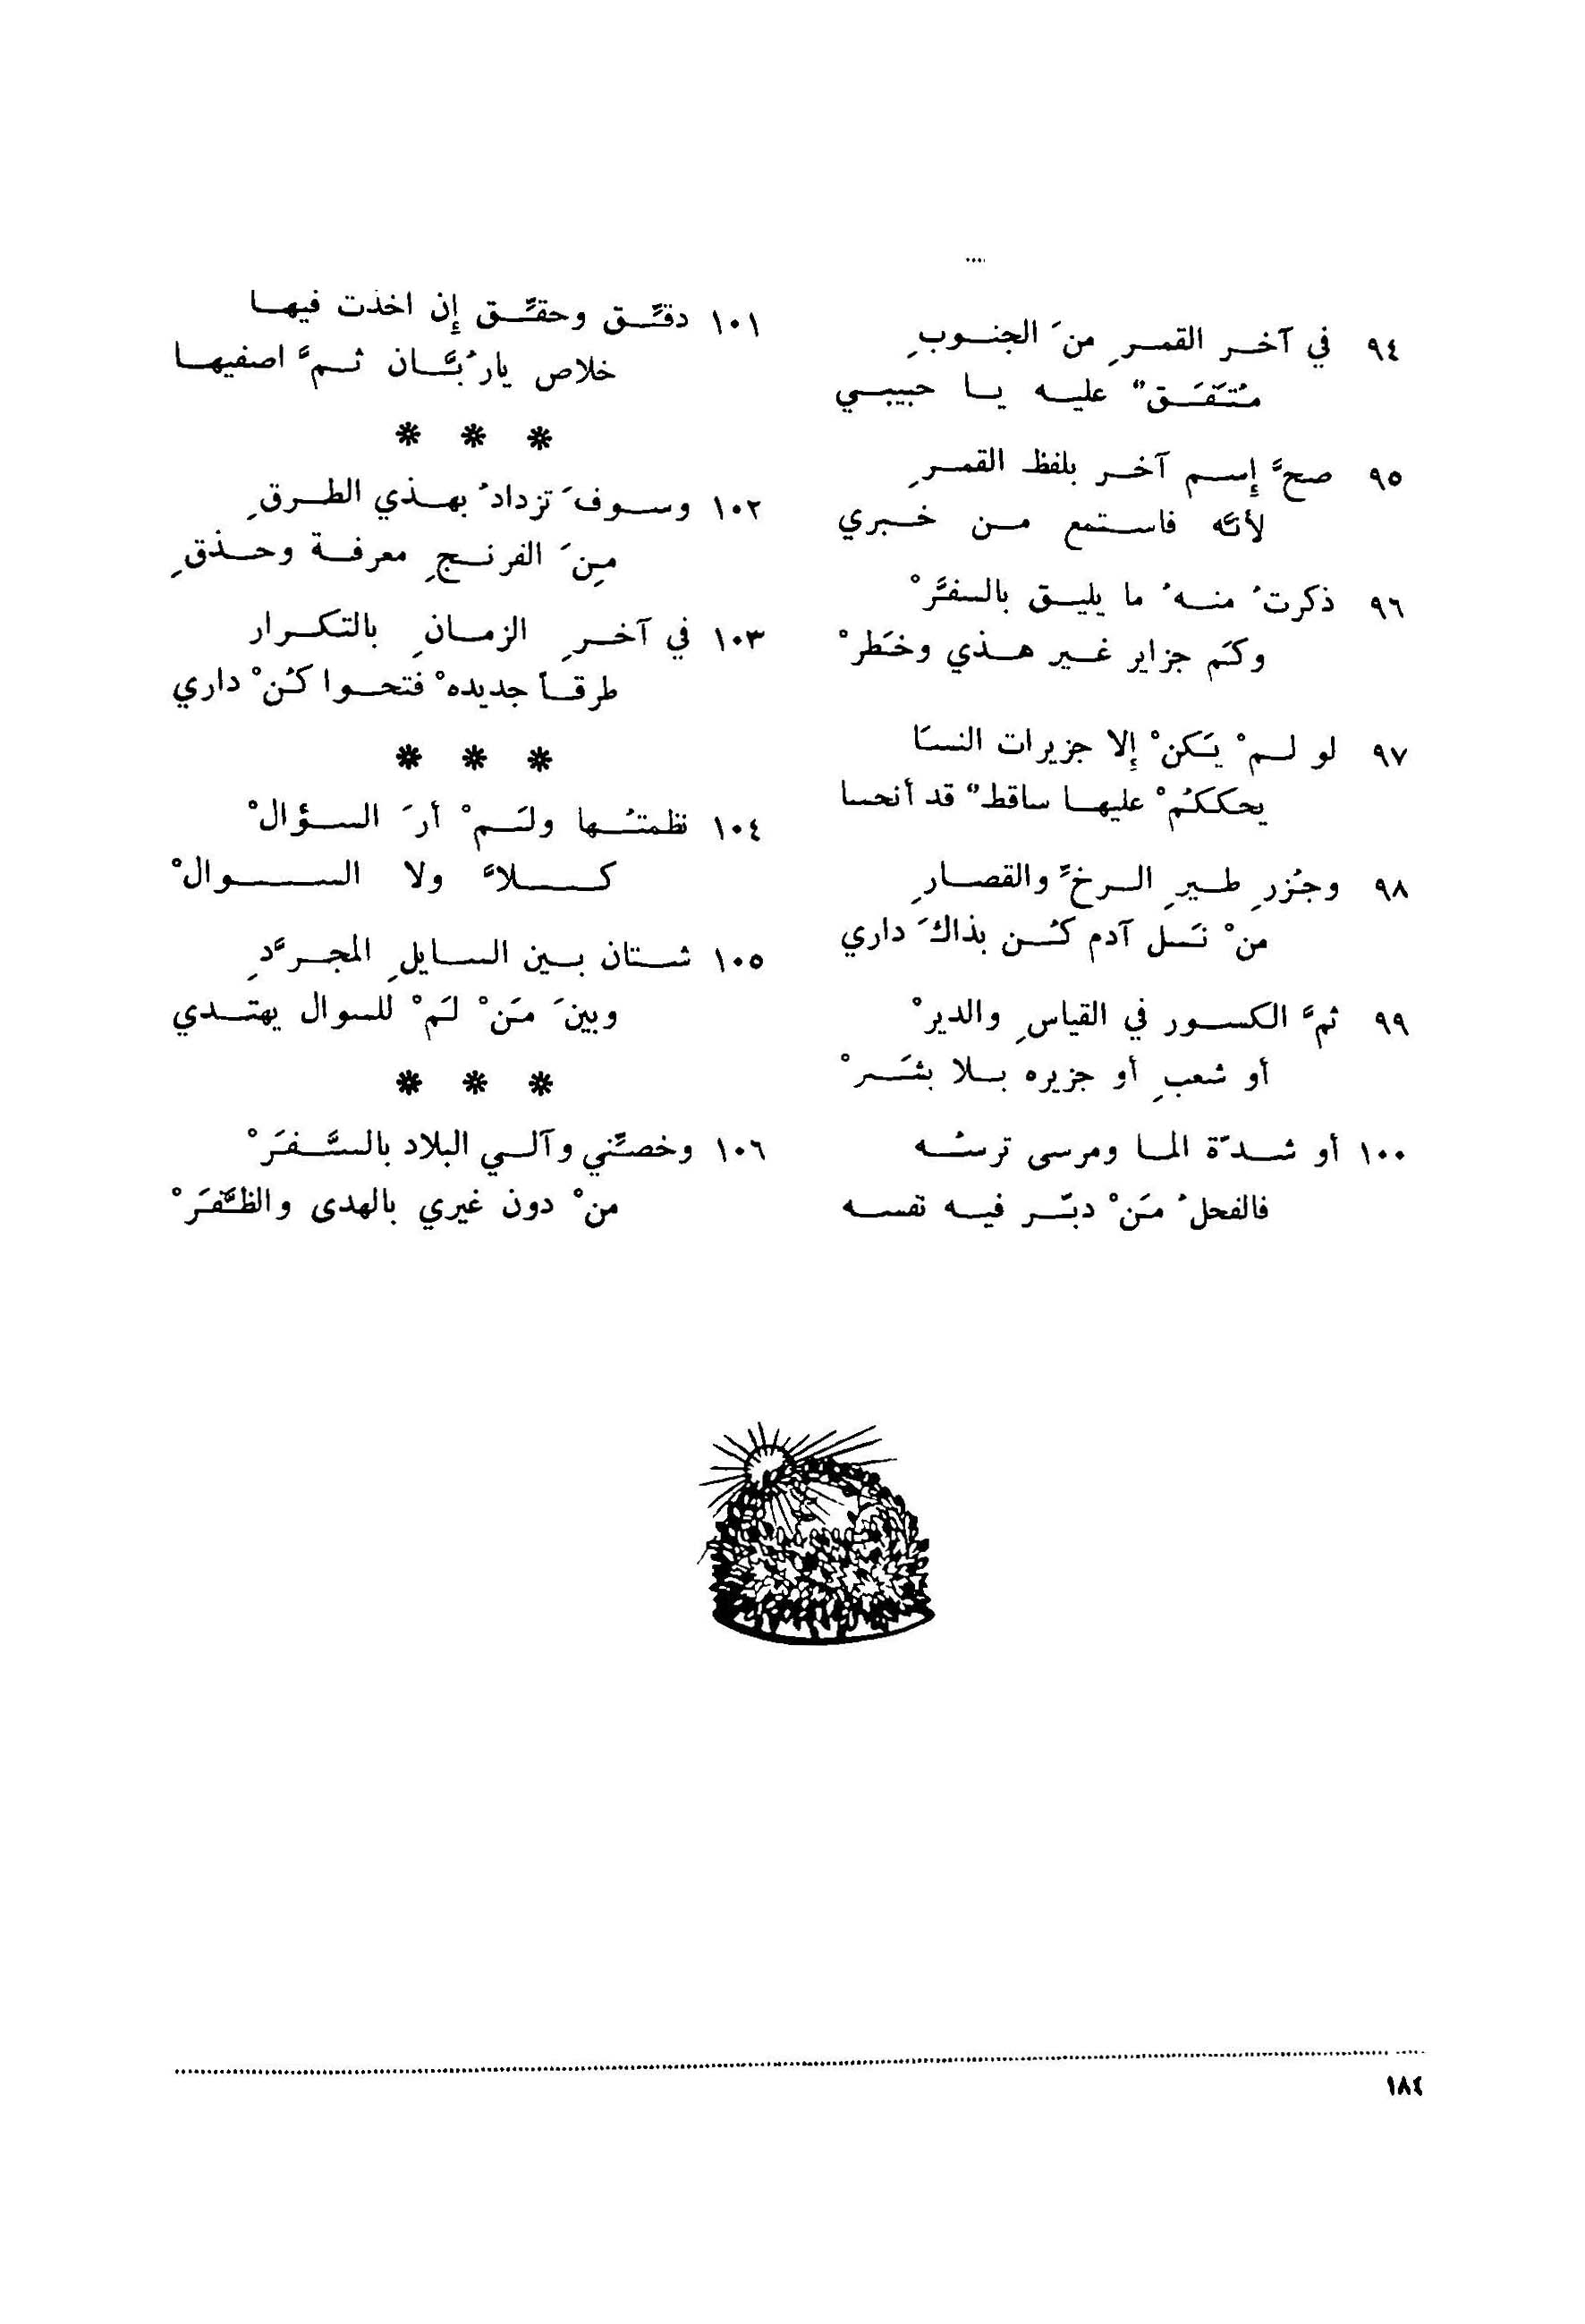 ٩٤ في آخر القمرِ منَ الجنوبِ
مُتَفَق" عليه يا حبيبي
٩٥ صحَّ إسم آخر بلفظ القمرِ
لأنَّه فاستمع من خبري
٩٦ ذكرتُ منهُ ما يليق بالسفَّرْ
وكَم جزاير غير هذي وخَطرْ
٩٧ لو لمْ يَكنْ إلا جزيرات النسَا
يحككُمْ عليها ساقط" قد أنحسا
٩٨ وجُزرِ طيرِ الرخَّ والقصارِ
منْ نَسل آدم كُن بذاكَ داري
٩٩ ثمَّ الكسور في القياسِ والديرْ
أو شعبِ أو جزيره بلا بشَرْ
١٠٠ أو شدّة الما ومرسى ترسُه
فالفحلُ مَنْ دبّر فيه نفسه
١٠١ دقّق وحقّق إن اخذت فيها
خلاص يارُبَّان ثمَّ اصفيها
* * *
١٠٢ وسوفَ تزدادُ بهذي الطرقِ
مِنَ الفرنجِ معرفة وحذقِ
١٠٣ في آخرِ الزمانِ بالتكرار
طرقاً جديدهْ فتحوا كُنْ داري
* * *
١٠٤ نظمتُها ولَمْ أرَ السؤالْ
كلاَّ ولا السوالْ
١٠٥ شتان بين السايلِ المجرَّدِ
وبينَ مَنْ لَمْ للسوال يهتدي
* * *
١٠٦ وخصّني وآلي البلاد بالسَّفَرْ
منْ دون غيري بالهدى والظَّفَرْ
١٨٤